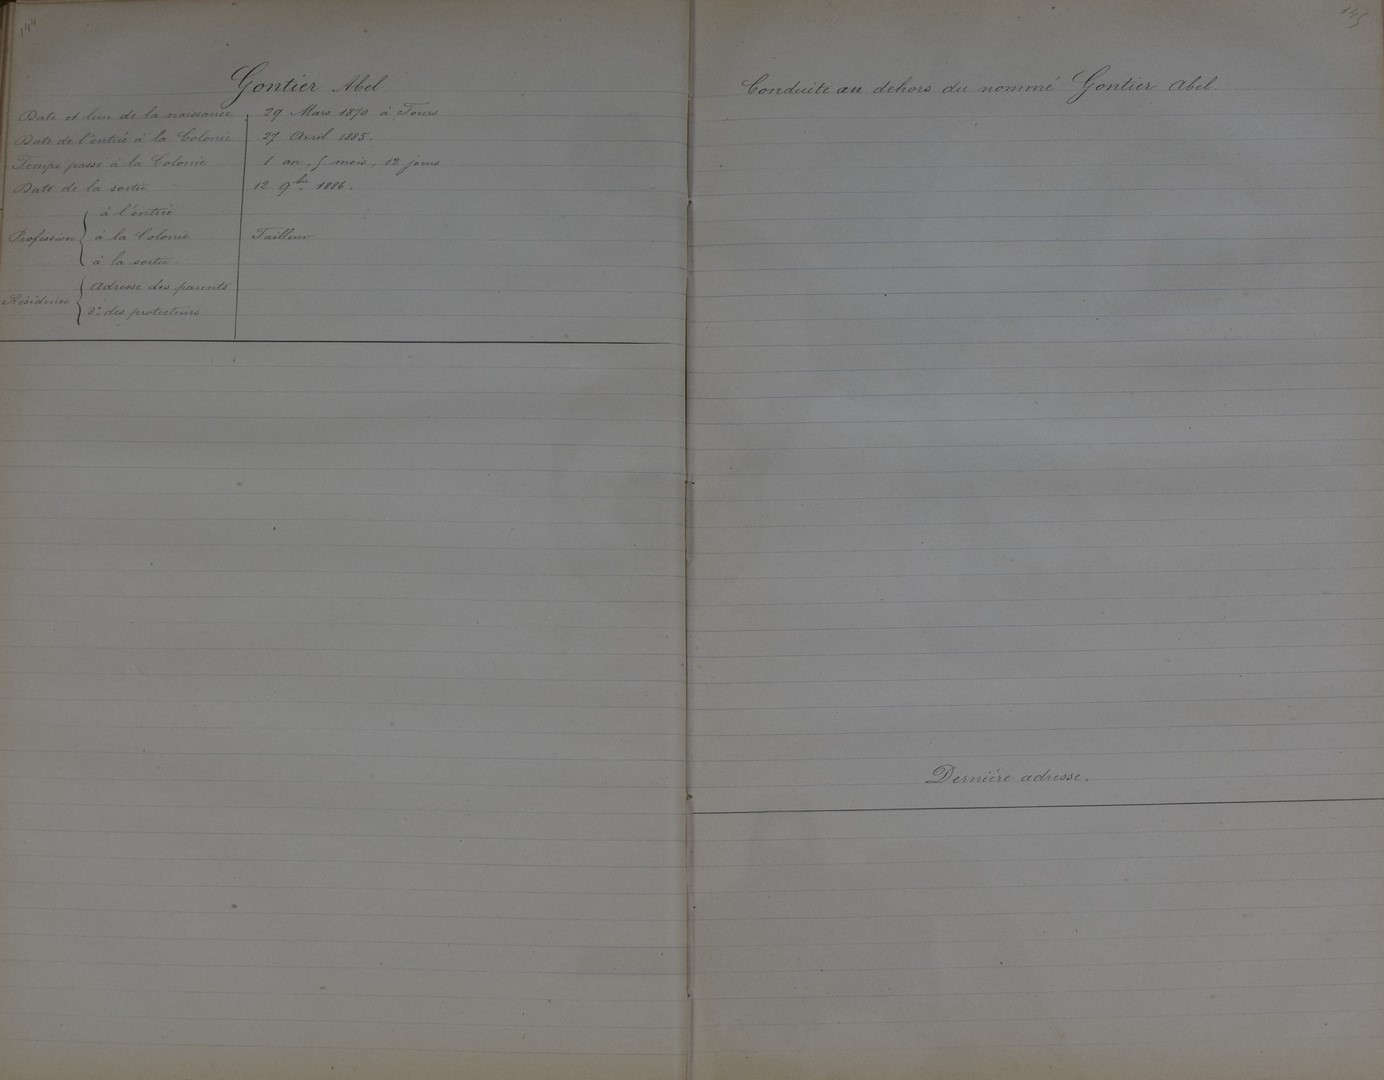 144
Gontier Abel
Date et lieu de la naissance 29 Mars 1870 à Tours
Date de l'entrée à la Colonie 27 Avril 1885.
Temps passé à la Colonie 1 an, 5 mois, 12 jours
Date de la sortie 12 9bre 1886.
à l'entrée
Profession à la Colonie Tailleur
à la sortie
Adresse des parents
Résidence
do des protecteurs
145
Conduite au dehors du nommé Gontier Abel.
Dernière adresse.